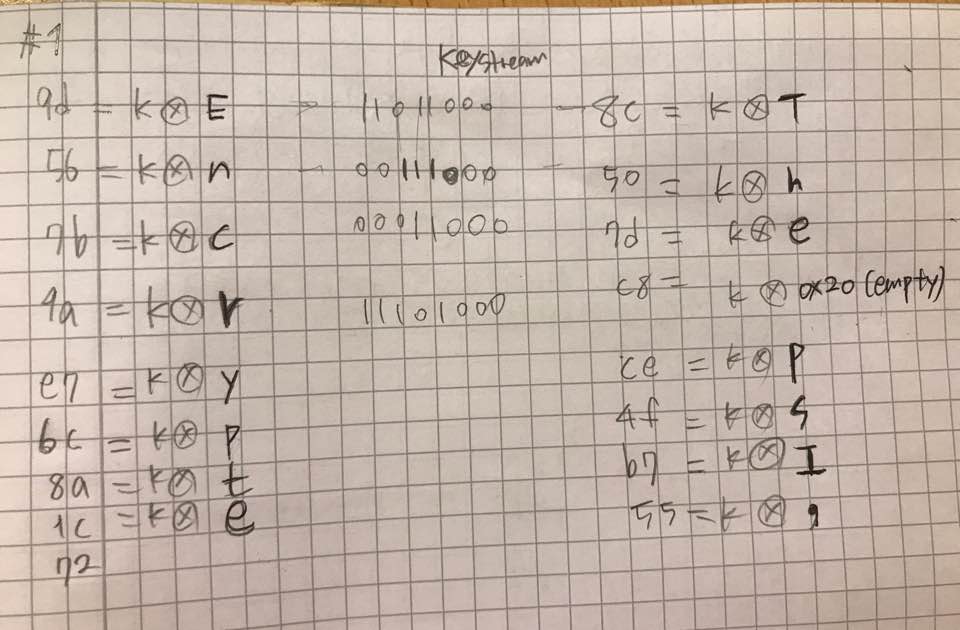 #1
Keystream
9d = k ⊗ E 11011000 - 8c = k ⊗ T
56 = k ⊗ n - 00111000 - 50 = k ⊗ h
7b = k ⊗ c 00011000 7d = k ⊗ e
9a = k ⊗ r 11101000 c8 = k ⊗ 0x20 (empty)
e7 = k ⊗ y ce = k ⊗ p
6c = k ⊗ p 4f = k ⊗ S
8a = k ⊗ t b7 = k ⊗ I
1c = k ⊗ e 55 = k ⊗
72